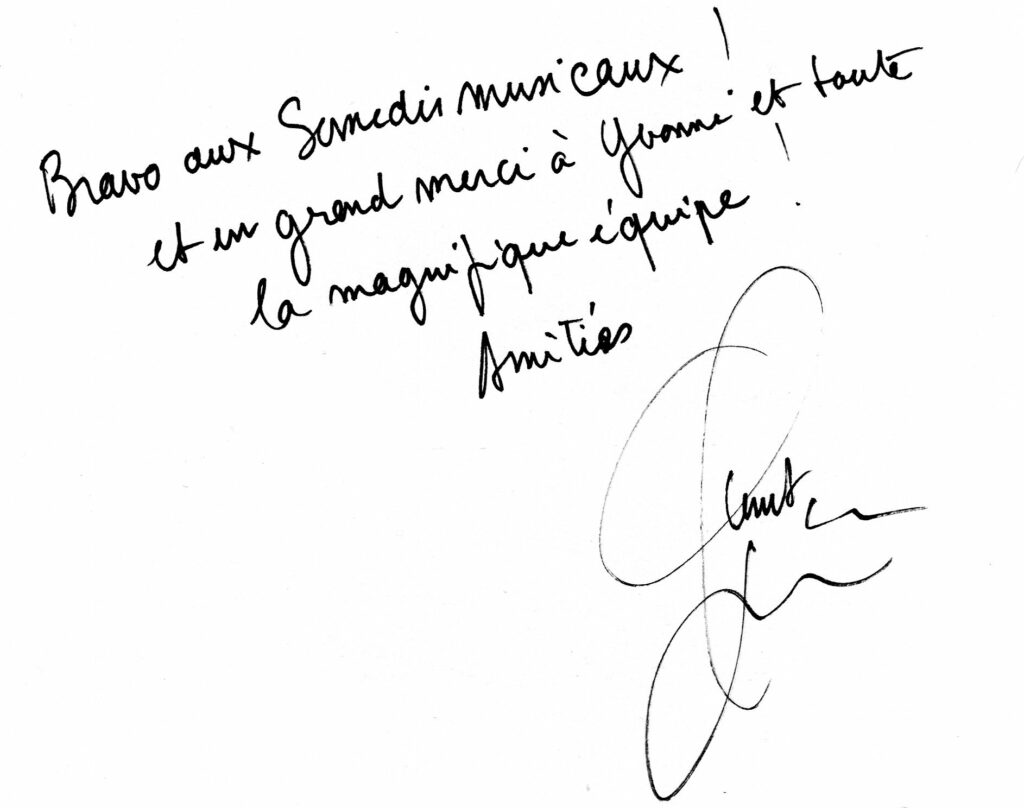 Bravo aux Samedis musicaux !
et un grand merci à Yvonne et toute
la magnifique équipe !
Amitiés